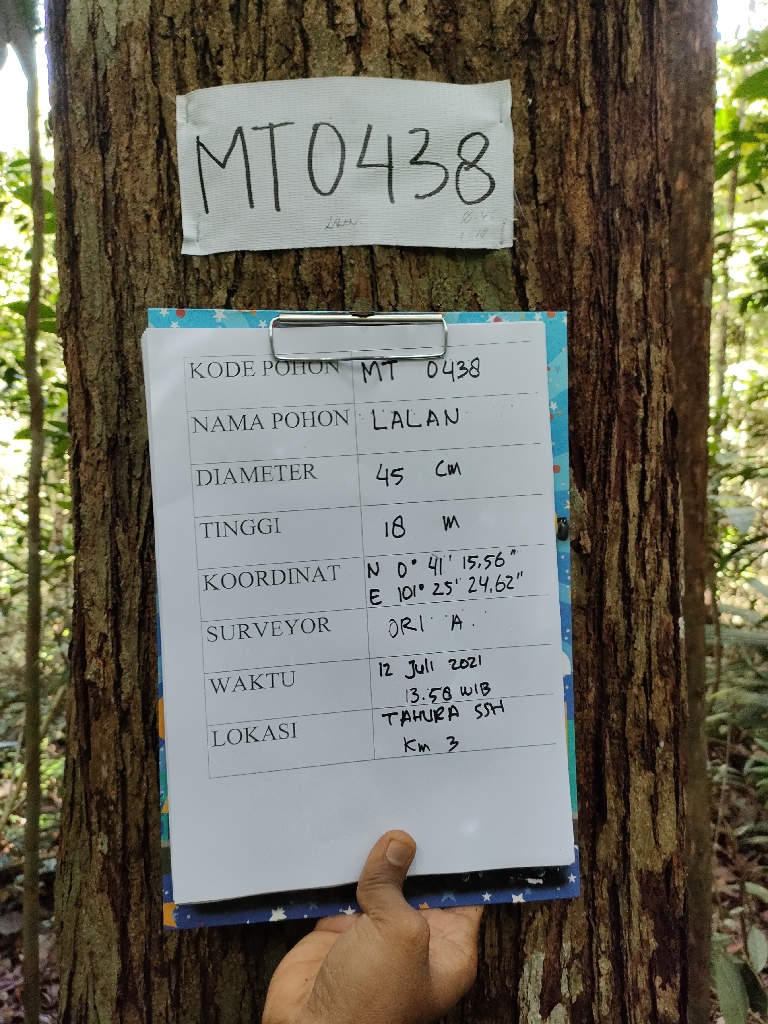 MT0438
LALAN
KODE POHON MT 0438
NAMA POHON LALAN
DIAMETER 45 cm
TINGGI 18 m
KOORDINAT N 0° 41' 15,56"
E 101° 25' 24,62"
SURVEYOR ORI A.
WAKTU 12 Juli 2021
13.58 WIB
LOKASI TAHURA SSH
Km 3